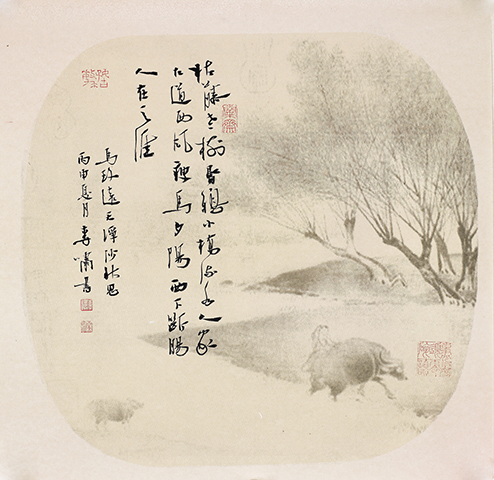 枯藤老樹昏鴉小橋流水人家
古道西風瘦馬夕陽西下斷腸
人在天涯
馬致遠天淨沙秋思
丙申夏月李嘯書